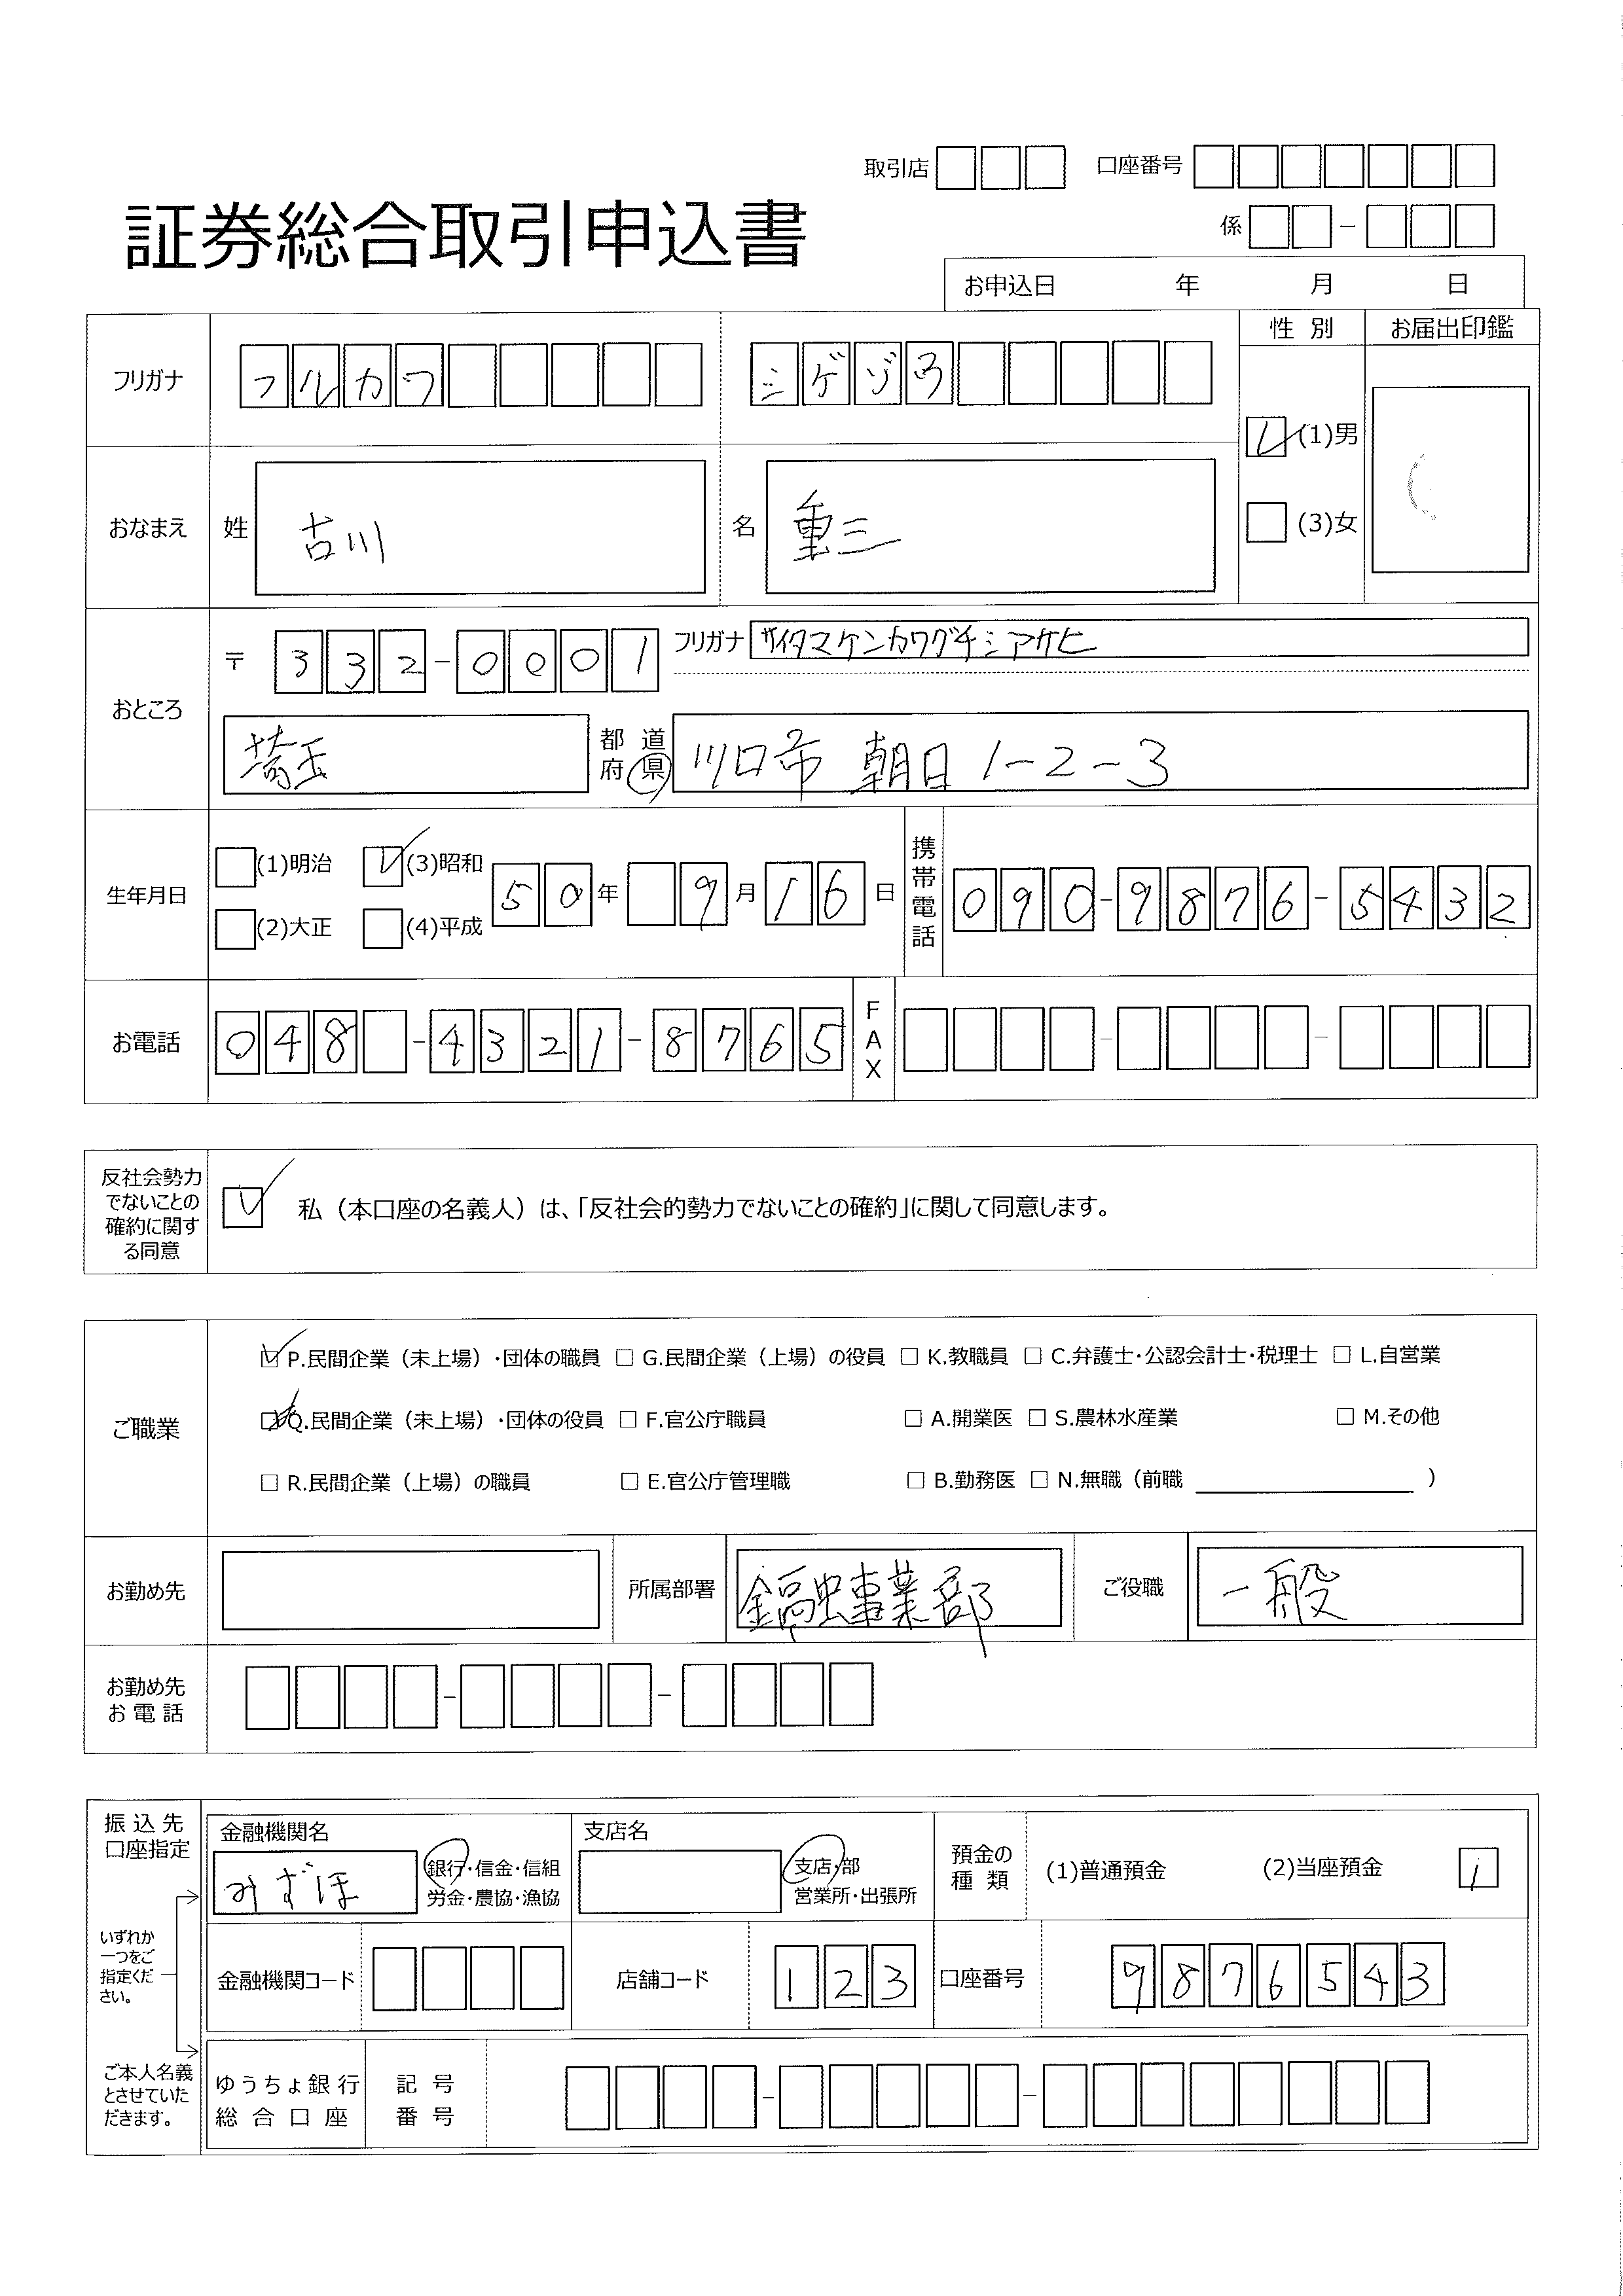 取引店 口座番号
証券総合取引申込書
係 －
お申込日 年 月 日
フリガナ フルカワ シゲゾウ
性別 お届出印鑑
☑(1)男
□(3)女
おなまえ 姓 古川 名 重三
おところ 〒 332-0001 フリガナ サイタマケンカワグチシアサヒ
埼玉 都道府県 川口市 朝日 1-2-3
生年月日 □(1)明治 ☑(3)昭和 50年 9月16日
□(2)大正 □(4)平成
携帯電話 090-9876-5432
お電話 048-4321-8765 FAX - -
反社会勢力
でないことの
確約に関す
る同意
☑ 私（本口座の名義人）は、「反社会的勢力でないことの確約」に関して同意します。
ご職業
☑ P.民間企業（未上場）・団体の職員 □ G.民間企業（上場）の役員 □ K.教職員 □ C.弁護士・公認会計士・税理士 □ L.自営業
□ Q.民間企業（未上場）・団体の役員 □ F.官公庁職員 □ A.開業医 □ S.農林水産業 □ M.その他
□ R.民間企業（上場）の職員 □ E.官公庁管理職 □ B.勤務医 □ N.無職（前職 ）
お勤め先 所属部署 事業部 ご役職 一般
お勤め先
お電話 - -
振込先
口座指定
いずれか
一つをご
指定くだ
さい。
ご本人名義
とさせていた
だきます。
金融機関名 支店名
みずほ 銀行・信金・信組
労金・農協・漁協
支店・部
営業所・出張所
預金の
種類
(1)普通預金 (2)当座預金 1
金融機関コード 店舗コード 123 口座番号 9876543
ゆうちょ銀行
総合口座
記号
番号
- -